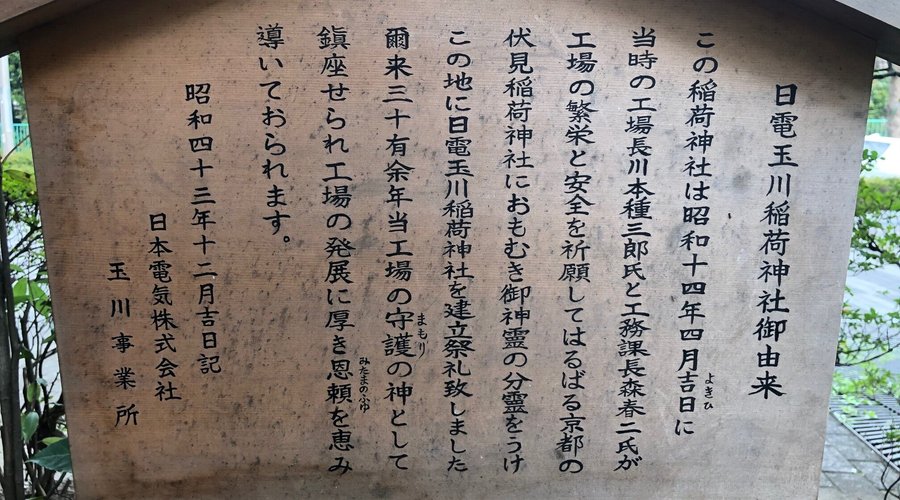 日電玉川稲荷神社御由来
この稲荷神社は昭和十四年四月吉日に
よきひ
当時の工場長川本種三郎氏と工務課長森春二氏が
工場の繁栄と安全を祈願してはるばる京都の
伏見稲荷神社におもむき御神霊の分霊をうけ
この地に日電玉川稲荷神社を建立祭礼致しました
爾来三十有余年当工場の守護の神として
まもり
鎮座せられ工場の発展に厚き恩頼を恵み
みたまのふゆ
導いておられます。
昭和四十三年十二月吉日記
日本電気株式会社
玉川事業所